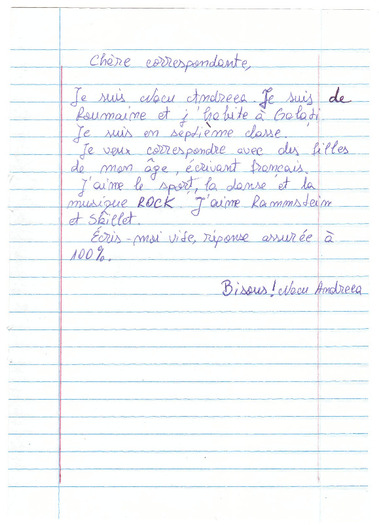 Chère correspondante,
Je suis Nacu Andreea. Je suis de
Roumaine et j'habite à Galați.
Je suis en septième classe.
Je veux correspondre avec des filles
de mon âge, écrivant français.
J'aime le sport, la danse et la
musique ROCK J'aime Rammstein
et Skillet.
Écris-moi vite, réponse assurée à
100%.
Bisous! Nacu Andreea